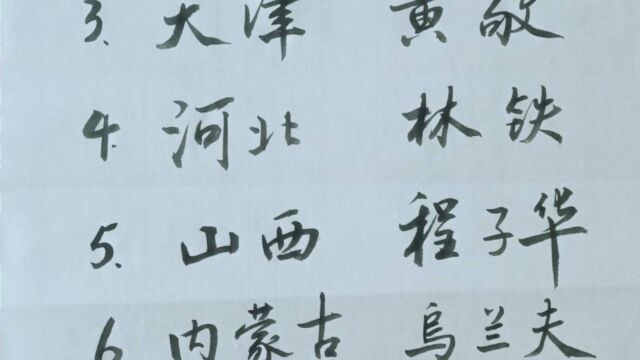 3. 天津 黄敬
4. 河北 林铁
5. 山西 程子华
6 内蒙古 乌兰夫